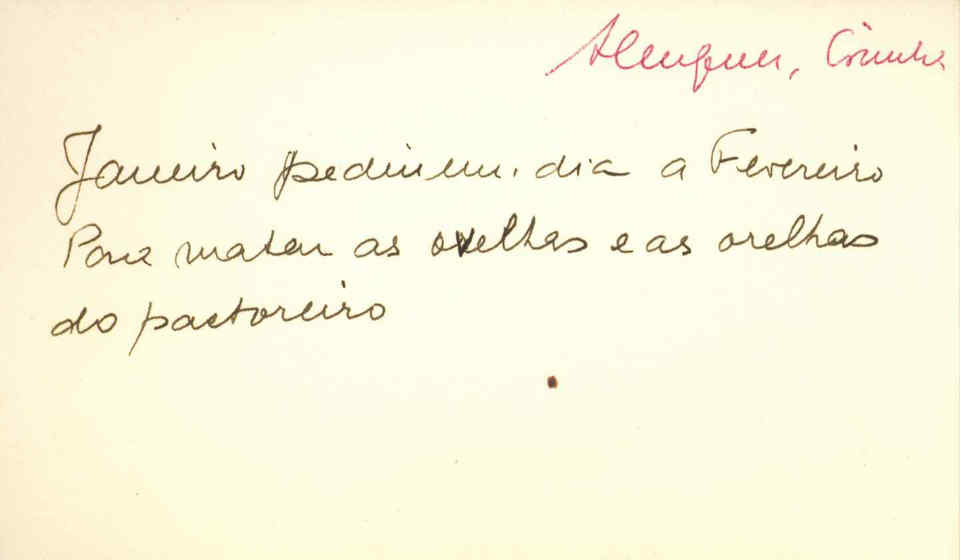 Alenquer,
Janeiro pediu um dia a Fevereiro
Para matar as ovelhas e as orelhas
do pastoreiro